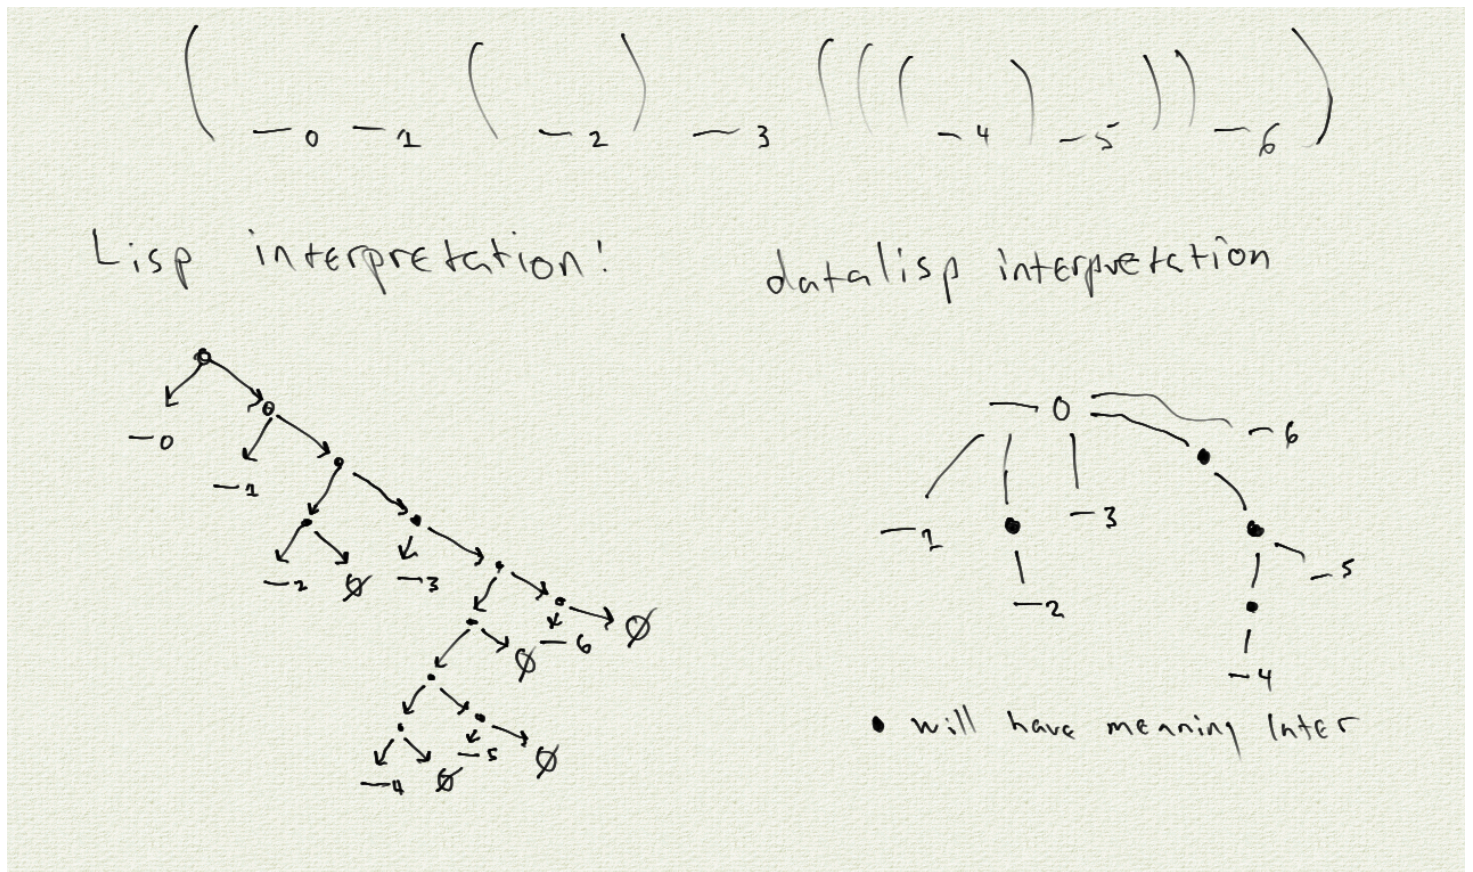 ( _0 _1 ( _2 ) _3 ( ( ( _4 ) _5 ) ) _6 )
Lisp interpretation: datalisp interpretation
_0
_1
_2 ∅ _3
∅ _6 ∅
_4 ∅ _5 ∅
_0
_6
_1 _3
_5
_2
_4
• will have meaning later